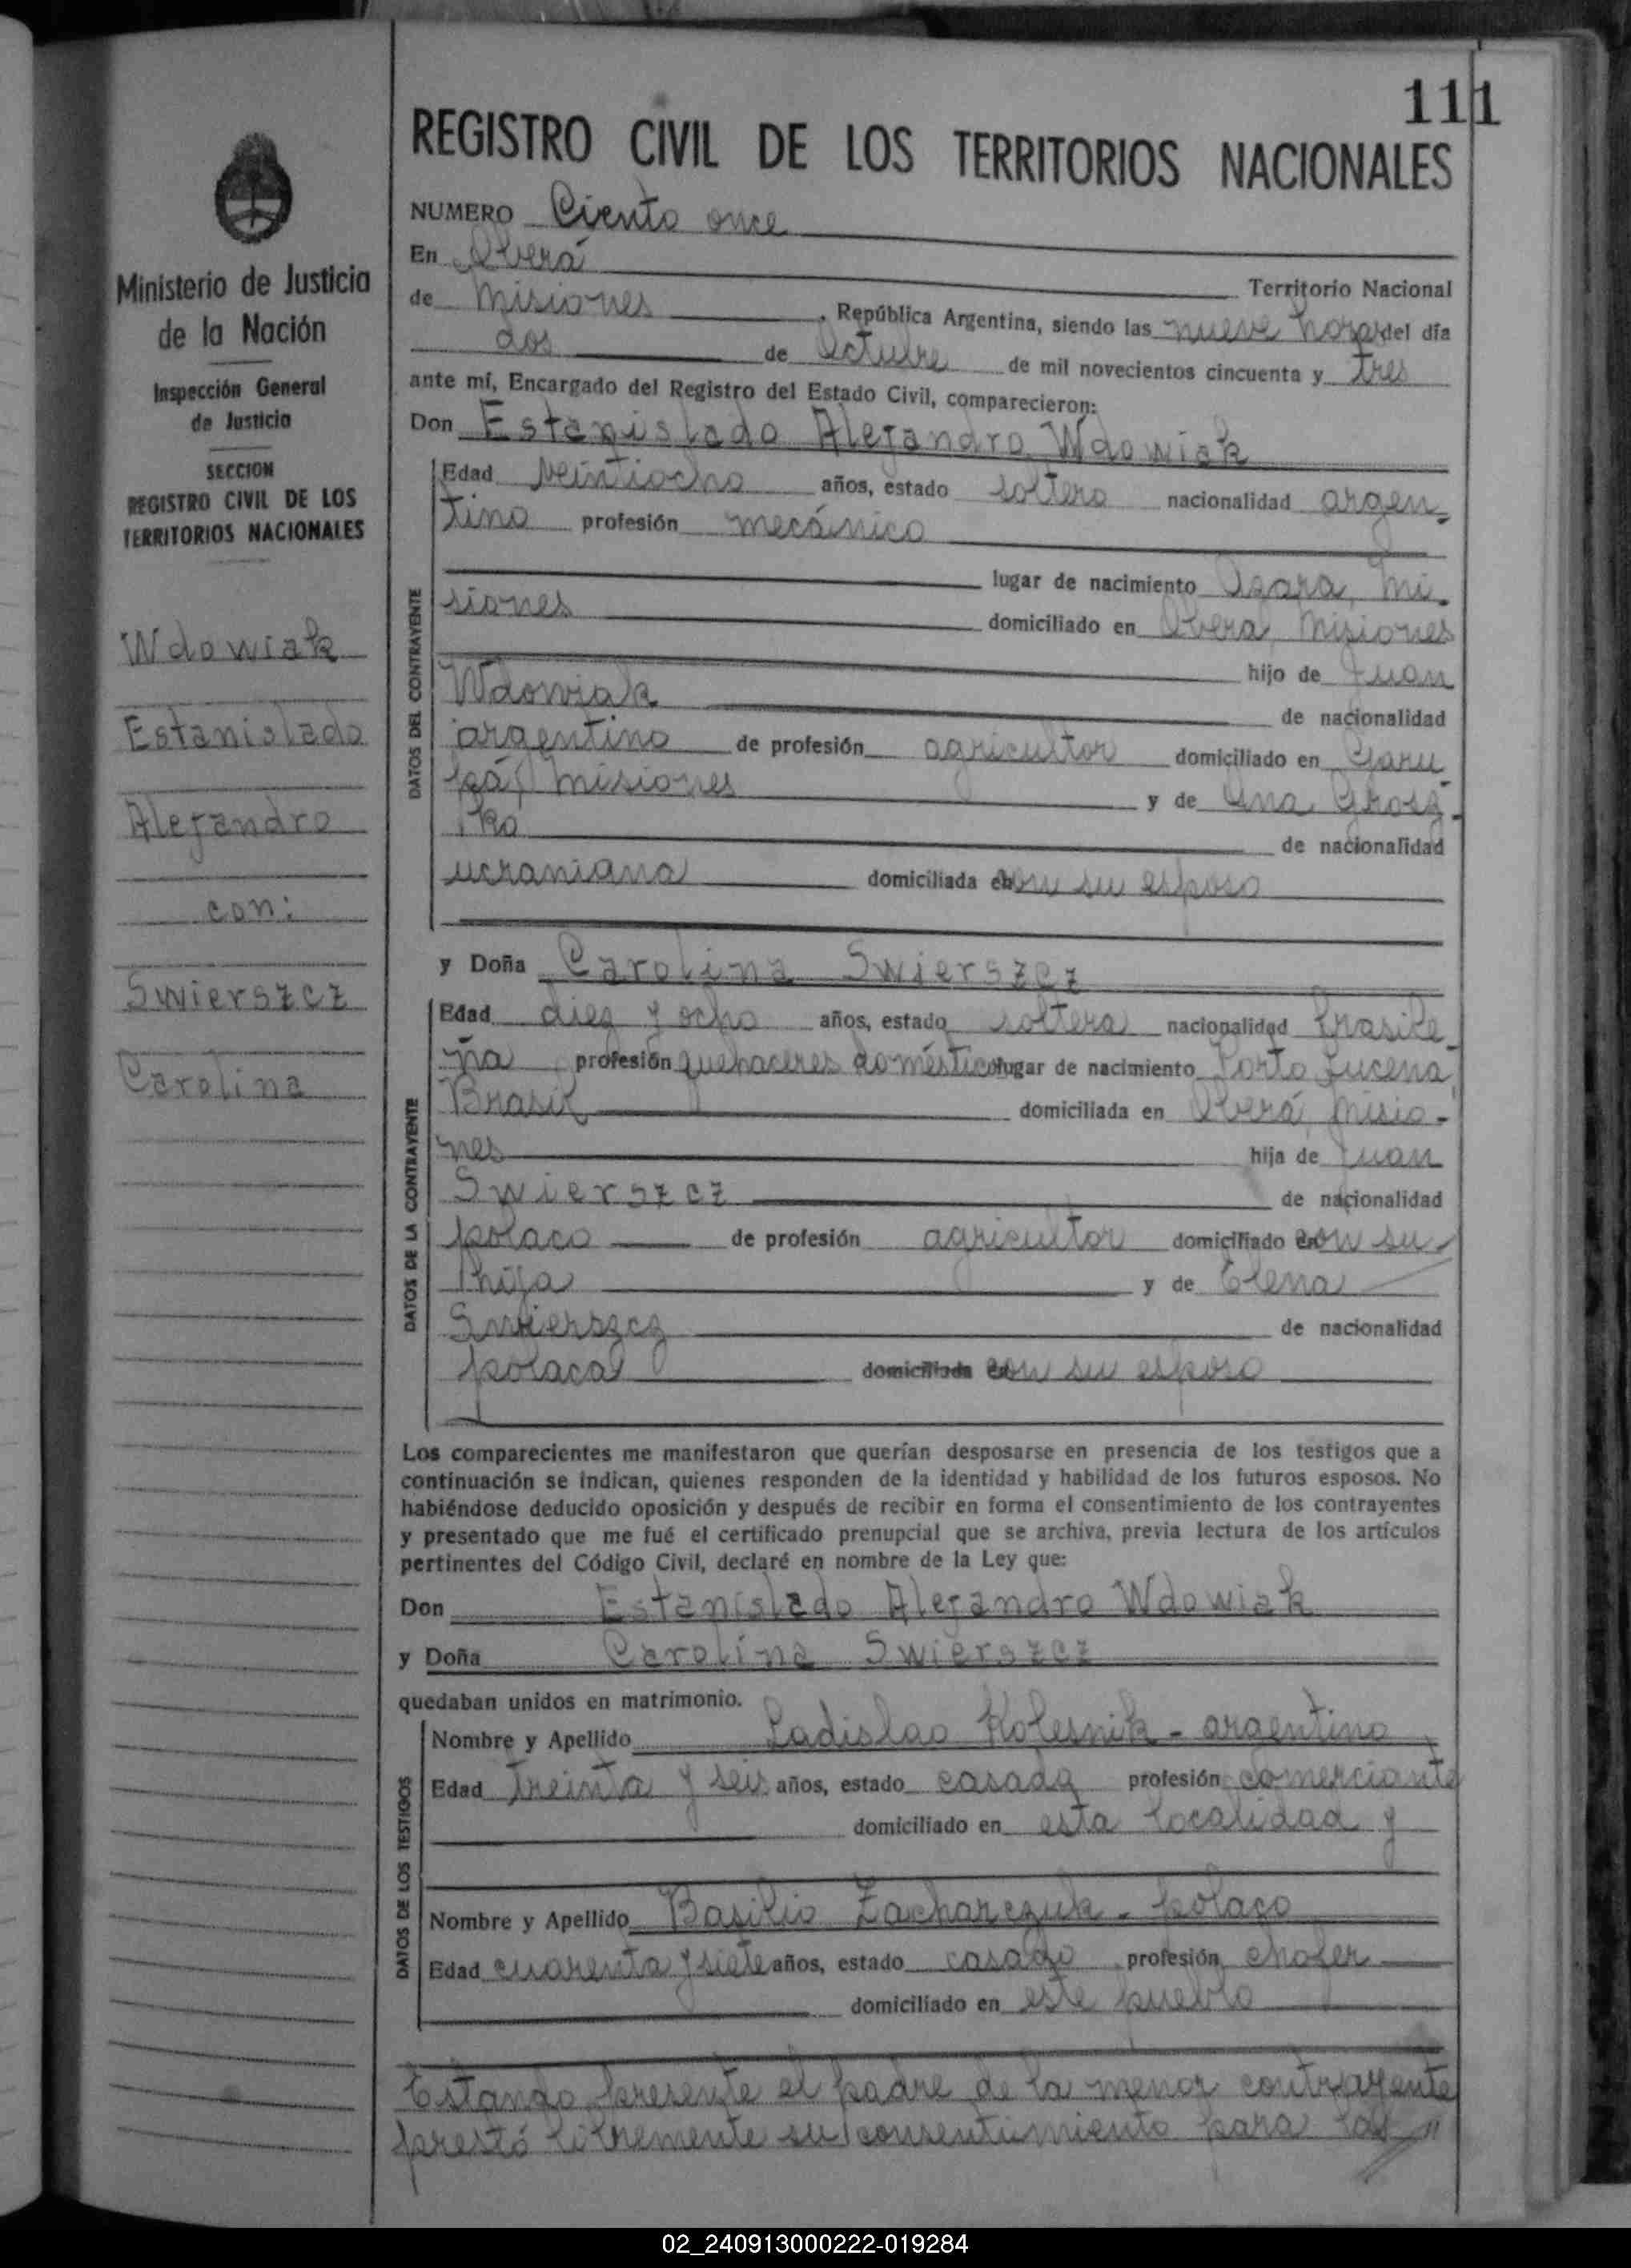 111
REGISTRO CIVIL DE LOS TERRITORIOS NACIONALES
Ministerio de Justicia
de la Nación
Inspección General
de Justicia
SECCION
REGISTRO CIVIL DE LOS
TERRITORIOS NACIONALES
Wdowiak
Estanislado
Alejandro
con:
Swierszcz
Carolina
NUMERO Ciento once
En Oberá Territorio Nacional
de Misiones, República Argentina, siendo las nueve horas del día
dos de Octubre de mil novecientos cincuenta y tres
ante mí, Encargado del Registro del Estado Civil, comparecieron:
Don Estanislado Alejandro Wdowiak
DATOS DEL CONTRAYENTE
Edad veintiocho años, estado soltero nacionalidad argen-
tino profesión mecánico
lugar de nacimiento Azara, Mi-
siones domiciliado en Oberá, Misiones
hijo de Juan
Wdowiak de nacionalidad
argentino de profesión agricultor domiciliado en Garu
pá, Misiones y de Ana
ko de nacionalidad
ucraniana domiciliada con su esposo
y Doña Carolina Swierszcz
DATOS DE LA CONTRAYENTE
Edad diez y ocho años, estado soltera nacionalidad brasile-
ña profesión quehaceres domésticos lugar de nacimiento Porto Lucena,
Brasil domiciliada en Oberá, Misio-
nes hija de Juan
Swierszcz de nacionalidad
polaco de profesión agricultor domiciliado con su
hija y de Elena
Swierszcz de nacionalidad
polaca domiciliada con su esposo
Los comparecientes me manifestaron que querían desposarse en presencia de los testigos que a
continuación se indican, quienes responden de la identidad y habilidad de los futuros esposos. No
habiéndose deducido oposición y después de recibir en forma el consentimiento de los contrayentes
y presentado que me fué el certificado prenupcial que se archiva, previa lectura de los artículos
pertinentes del Código Civil, declaré en nombre de la Ley que:
Don Estanislado Alejandro Wdowiak
y Doña Carolina Swierszcz
quedaban unidos en matrimonio.
DATOS DE LOS TESTIGOS
Nombre y Apellido Ladislao Kolesnik - argentino
Edad treinta y seis años, estado casado profesión comerciante
domiciliado en esta localidad y
Nombre y Apellido Basilio Zacharczuk - polaco
Edad cuarenta y siete años, estado casado profesión chofer
domiciliado en este pueblo
Estando presente el padre de la menor contrayente
prestó libremente su consentimiento para la
02_240913000222-019284